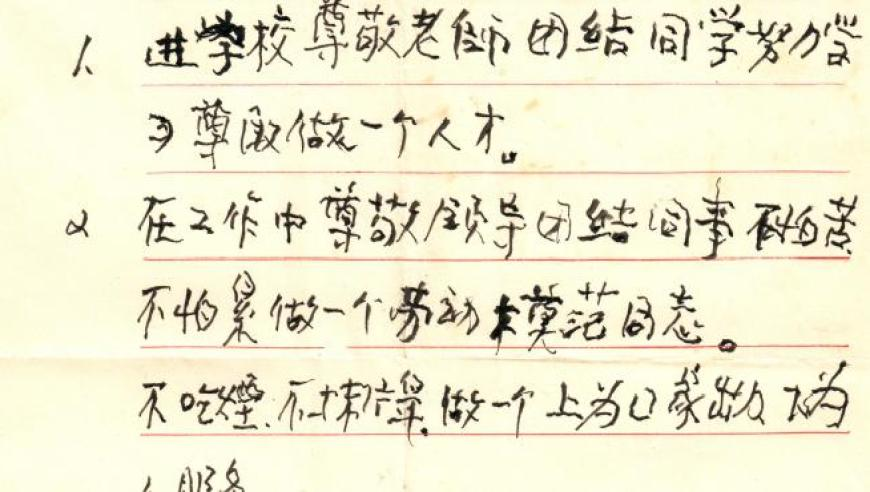 1、进学校尊敬老师团结同学努力学
习尊敬做一个人才。
2 在工作中尊敬领导团结同事不怕苦
不怕累做一个劳动模范同志。
不吃烟、不抹牌、做一个上为国家出力下为
人服务